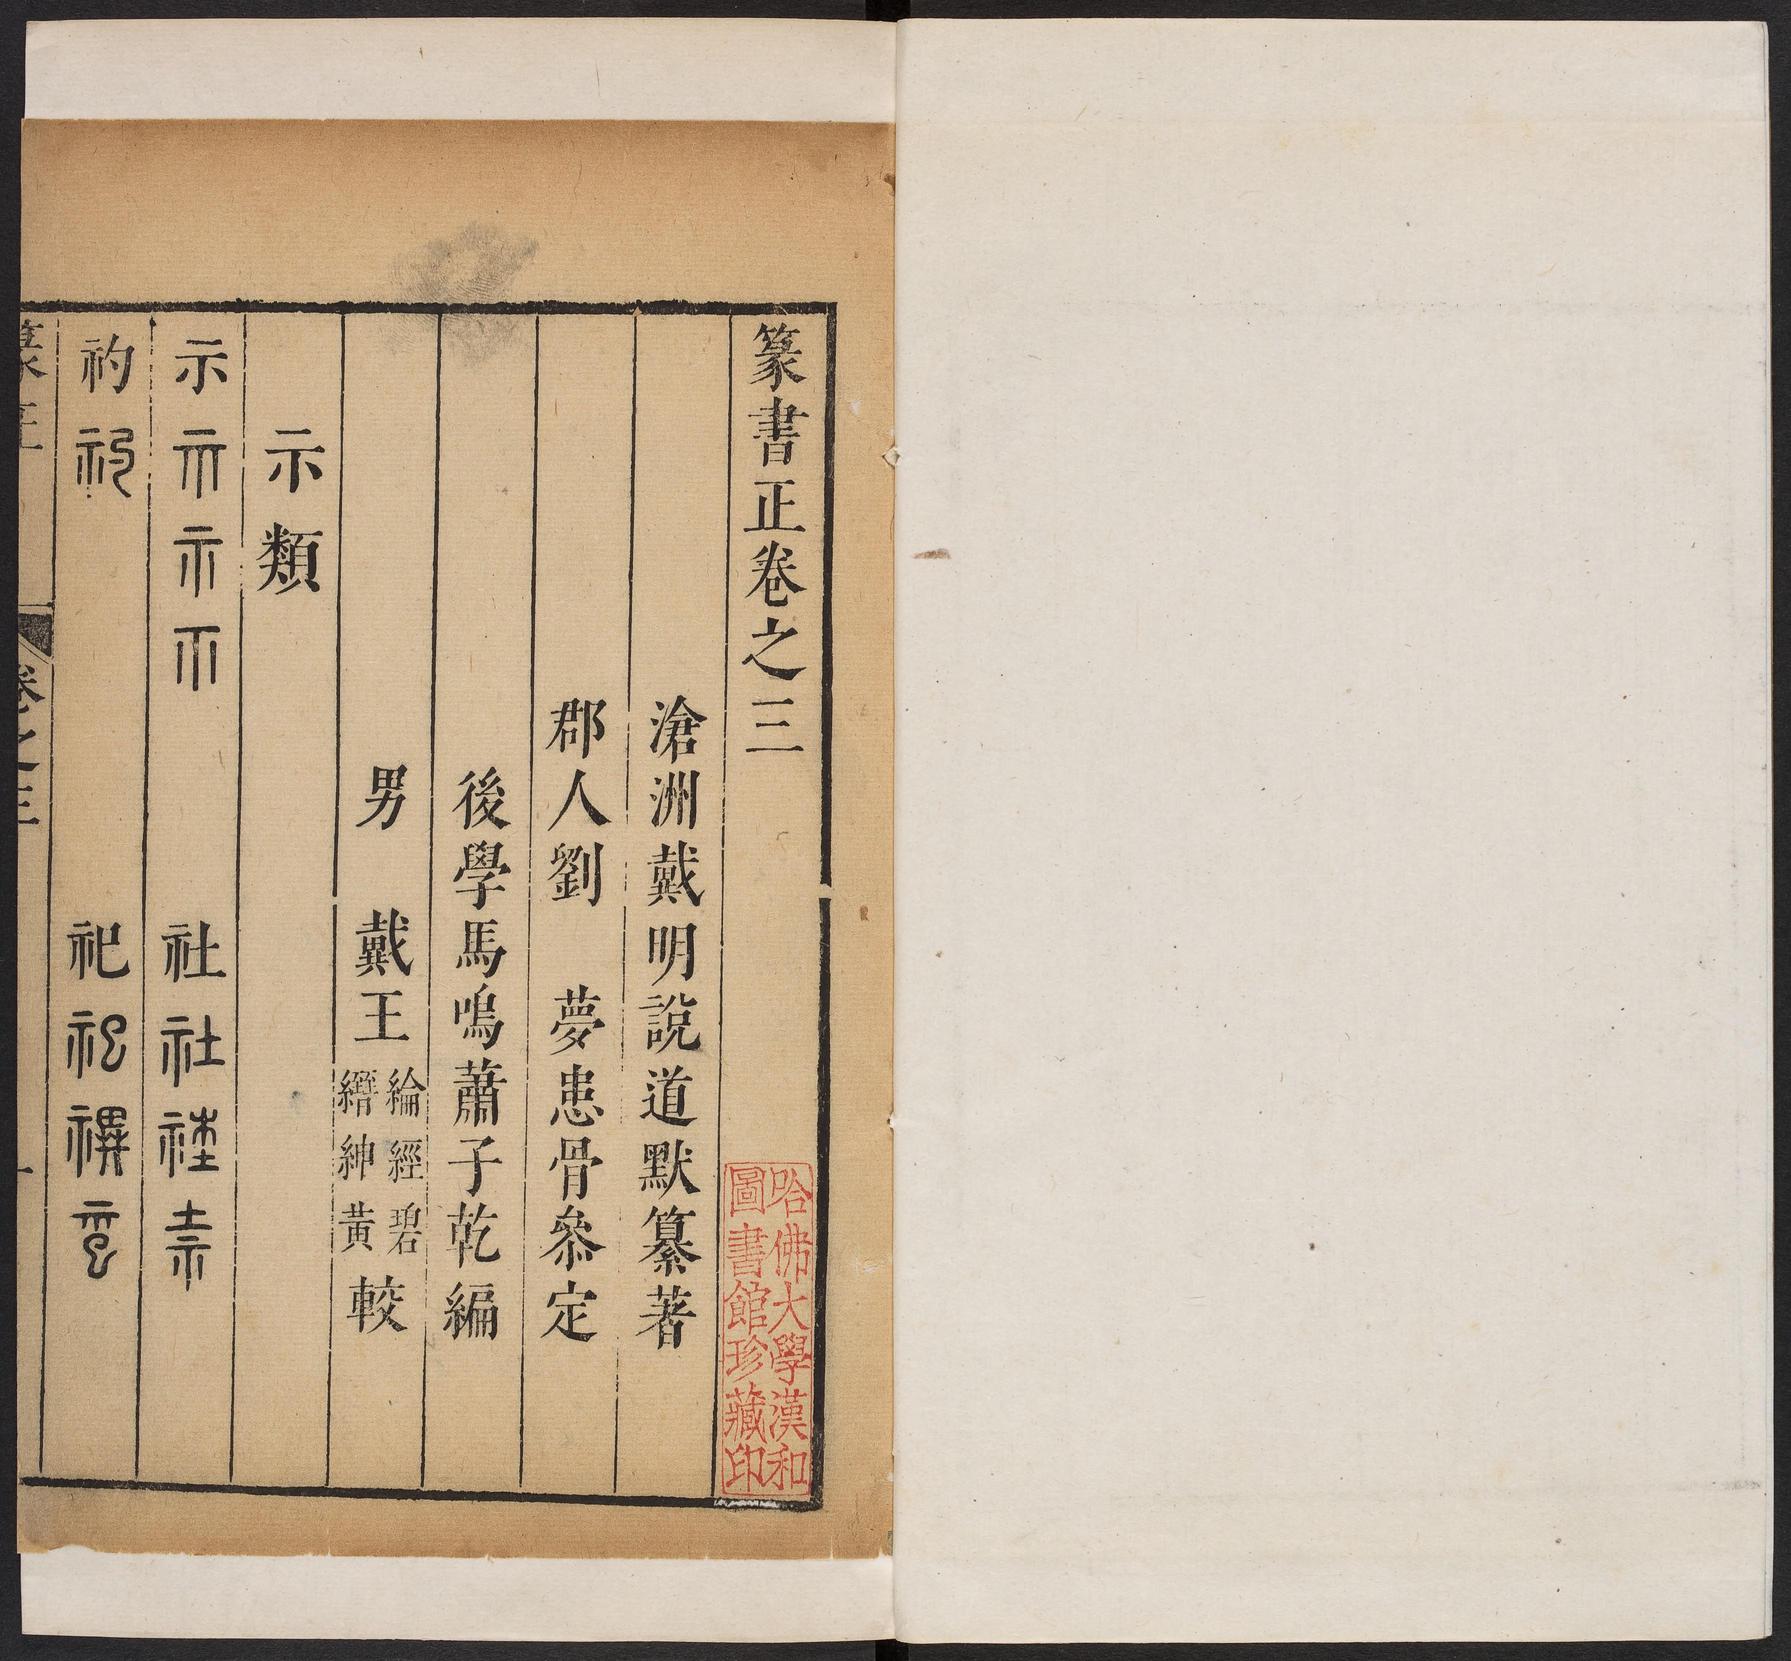 篆書正卷之三
滄洲戴明說道默纂著
郡人劉 夢患骨叅定
後學馬鳴蕭子乾編
男 戴王綸經碧縉紳黃較
示類
示 社
礿 祀
卷之三
一
哈佛大學漢和
圖書館珍藏印